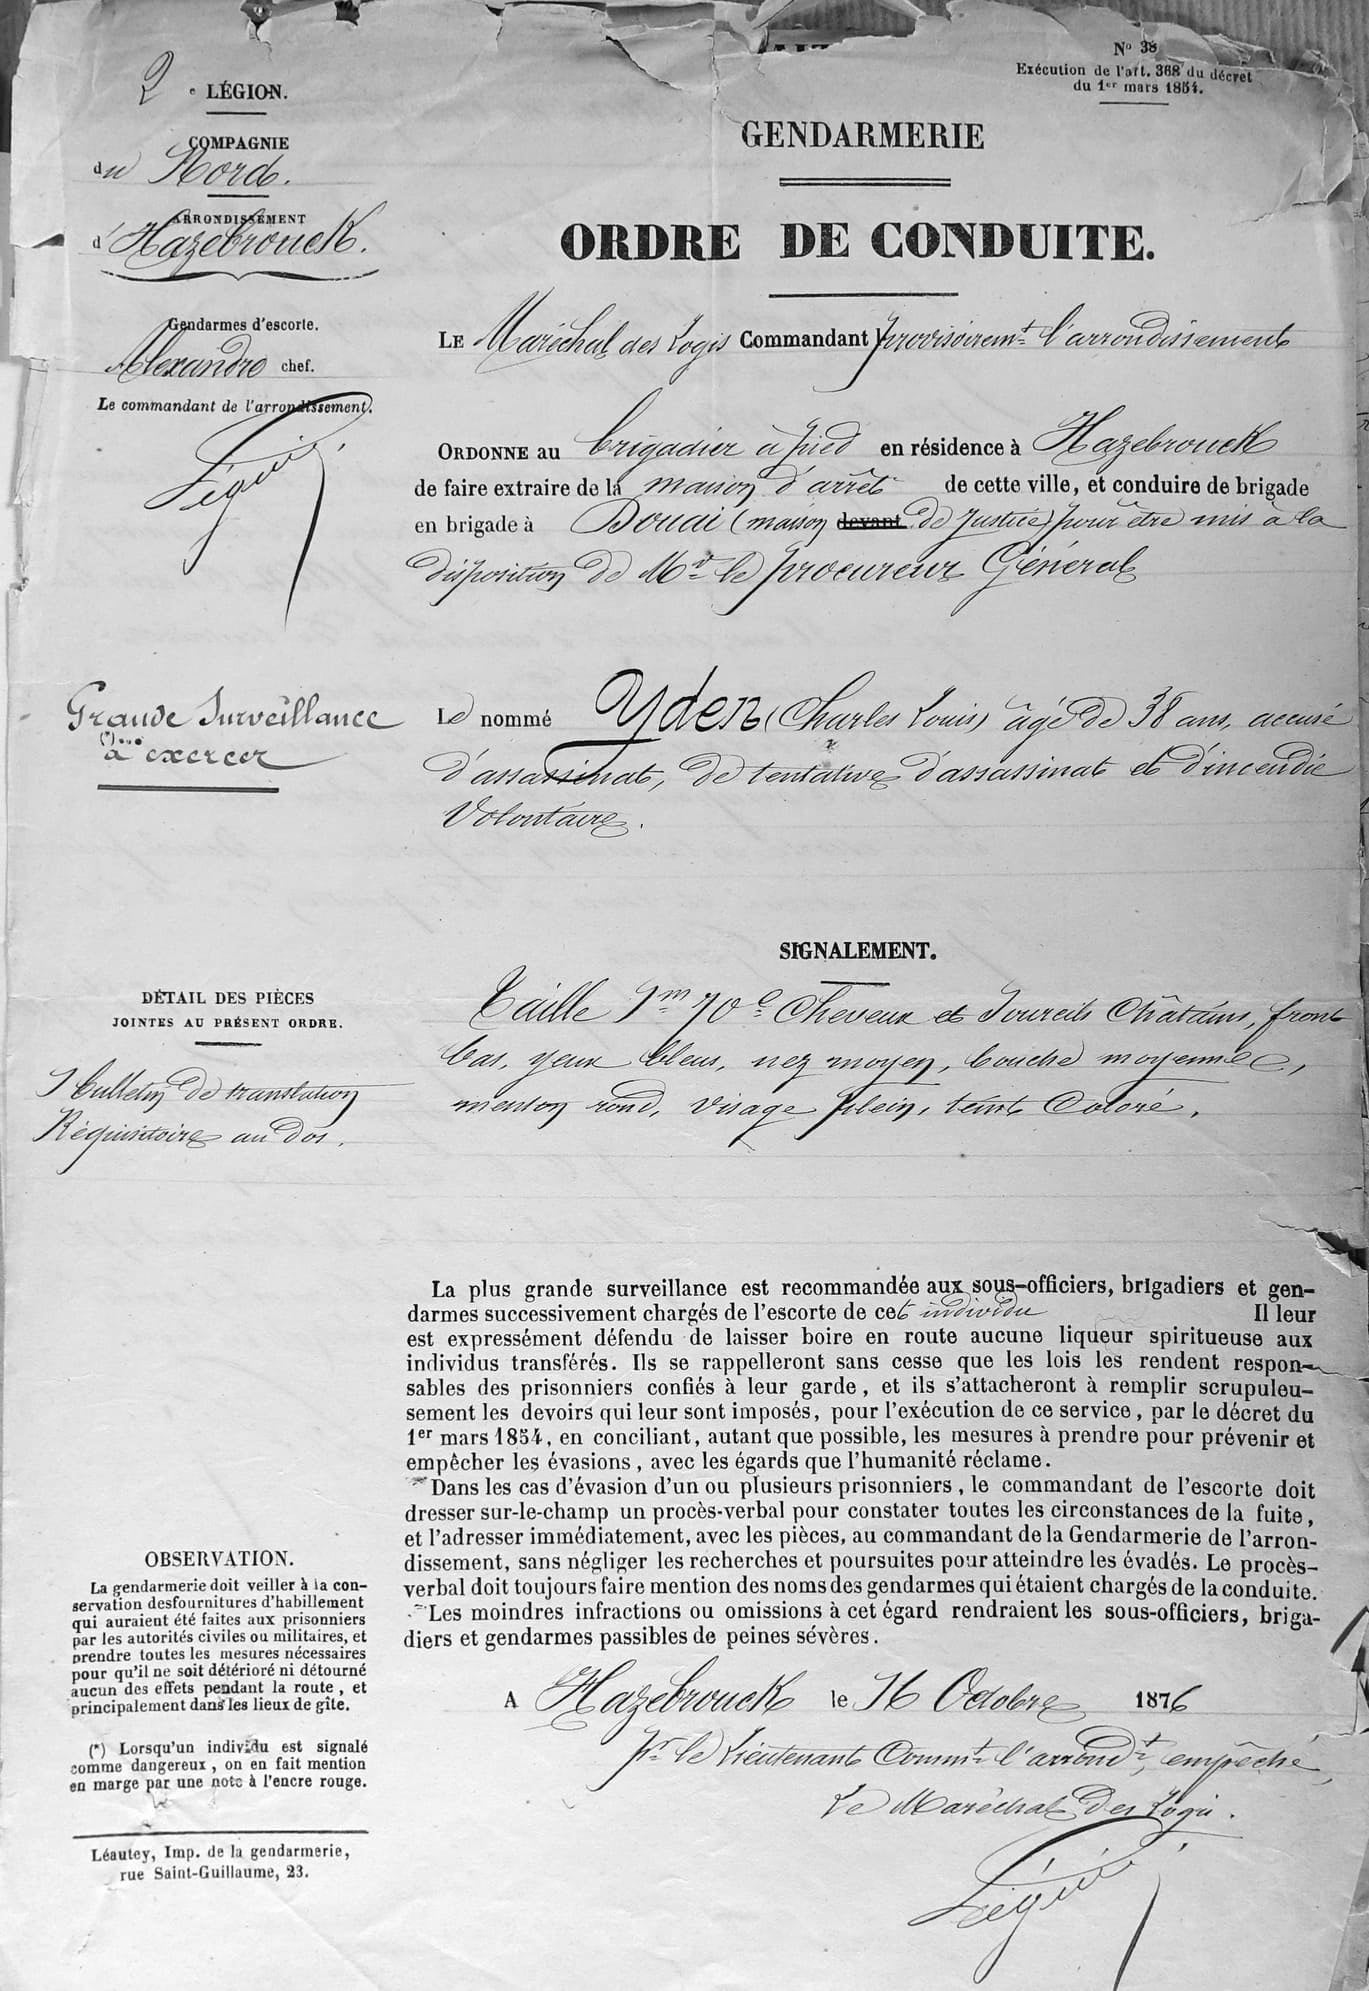 2e LÉGION.
COMPAGNIE
du Nord.
ARRONDISSEMENT
d'Hazebrouck.
Gendarmes d'escorte.
Alexandre chef.
Le commandant de l'arrondissement.
Grande Surveillance
(*)
à exercer
DÉTAIL DES PIÈCES
JOINTES AU PRÉSENT ORDRE.
1 bulletin de translation
Réquisitoire au dos.
OBSERVATION.
La gendarmerie doit veiller à la con-
servation des fournitures d'habillement
qui auraient été faites aux prisonniers
par les autorités civiles ou militaires, et
prendre toutes les mesures nécessaires
pour qu'il ne soit détérioré ni détourné
aucun des effets pendant la route, et
principalement dans les lieux de gîte.
(*) Lorsqu'un individu est signalé
comme dangereux, on en fait mention
en marge par une note à l'encre rouge.
Léautey, Imp. de la gendarmerie,
rue Saint-Guillaume, 23.
No 38
Exécution de l'art. 368 du décret
du 1er mars 1854.
GENDARMERIE
ORDRE DE CONDUITE.
LE Maréchal des Logis Commandant provisoiremt l'arrondissement
ORDONNE au brigadier à pied en résidence à Hazebrouck
de faire extraire de la maison d'arrêt de cette ville, et conduire de brigade
en brigade à Douai (maison devant de Justice) pour être mis à la
disposition de Mr le procureur Général
Le nommé Yden (Charles Louis) âgé de 38 ans, accusé
d'assassinat, de tentative d'assassinat et d'incendie
Volontaire.
SIGNALEMENT.
Taille 1m 70c Cheveux et Sourcils Châtains, front
bas, yeux bleus, nez moyen, bouche moyenne,
menton rond, visage plein, teint Coloré.
La plus grande surveillance est recommandée aux sous-officiers, brigadiers et gen-
darmes successivement chargés de l'escorte de cet individu Il leur
est expressément défendu de laisser boire en route aucune liqueur spiritueuse aux
individus transférés. Ils se rappelleront sans cesse que les lois les rendent respon-
sables des prisonniers confiés à leur garde, et ils s'attacheront à remplir scrupuleu-
sement les devoirs qui leur sont imposés, pour l'exécution de ce service, par le décret du
1er mars 1854, en conciliant, autant que possible, les mesures à prendre pour prévenir et
empêcher les évasions, avec les égards que l'humanité réclame.
Dans les cas d'évasion d'un ou plusieurs prisonniers, le commandant de l'escorte doit
dresser sur-le-champ un procès-verbal pour constater toutes les circonstances de la fuite,
et l'adresser immédiatement, avec les pièces, au commandant de la Gendarmerie de l'arron-
dissement, sans négliger les recherches et poursuites pour atteindre les évadés. Le procès-
verbal doit toujours faire mention des noms des gendarmes qui étaient chargés de la conduite.
Les moindres infractions ou omissions à cet égard rendraient les sous-officiers, briga-
diers et gendarmes passibles de peines sévères.
A Hazebrouck le 16 Octobre 1876
Pr le Lieutenant Commt l'arrondt, empêché,
Le Maréchal des Logis.